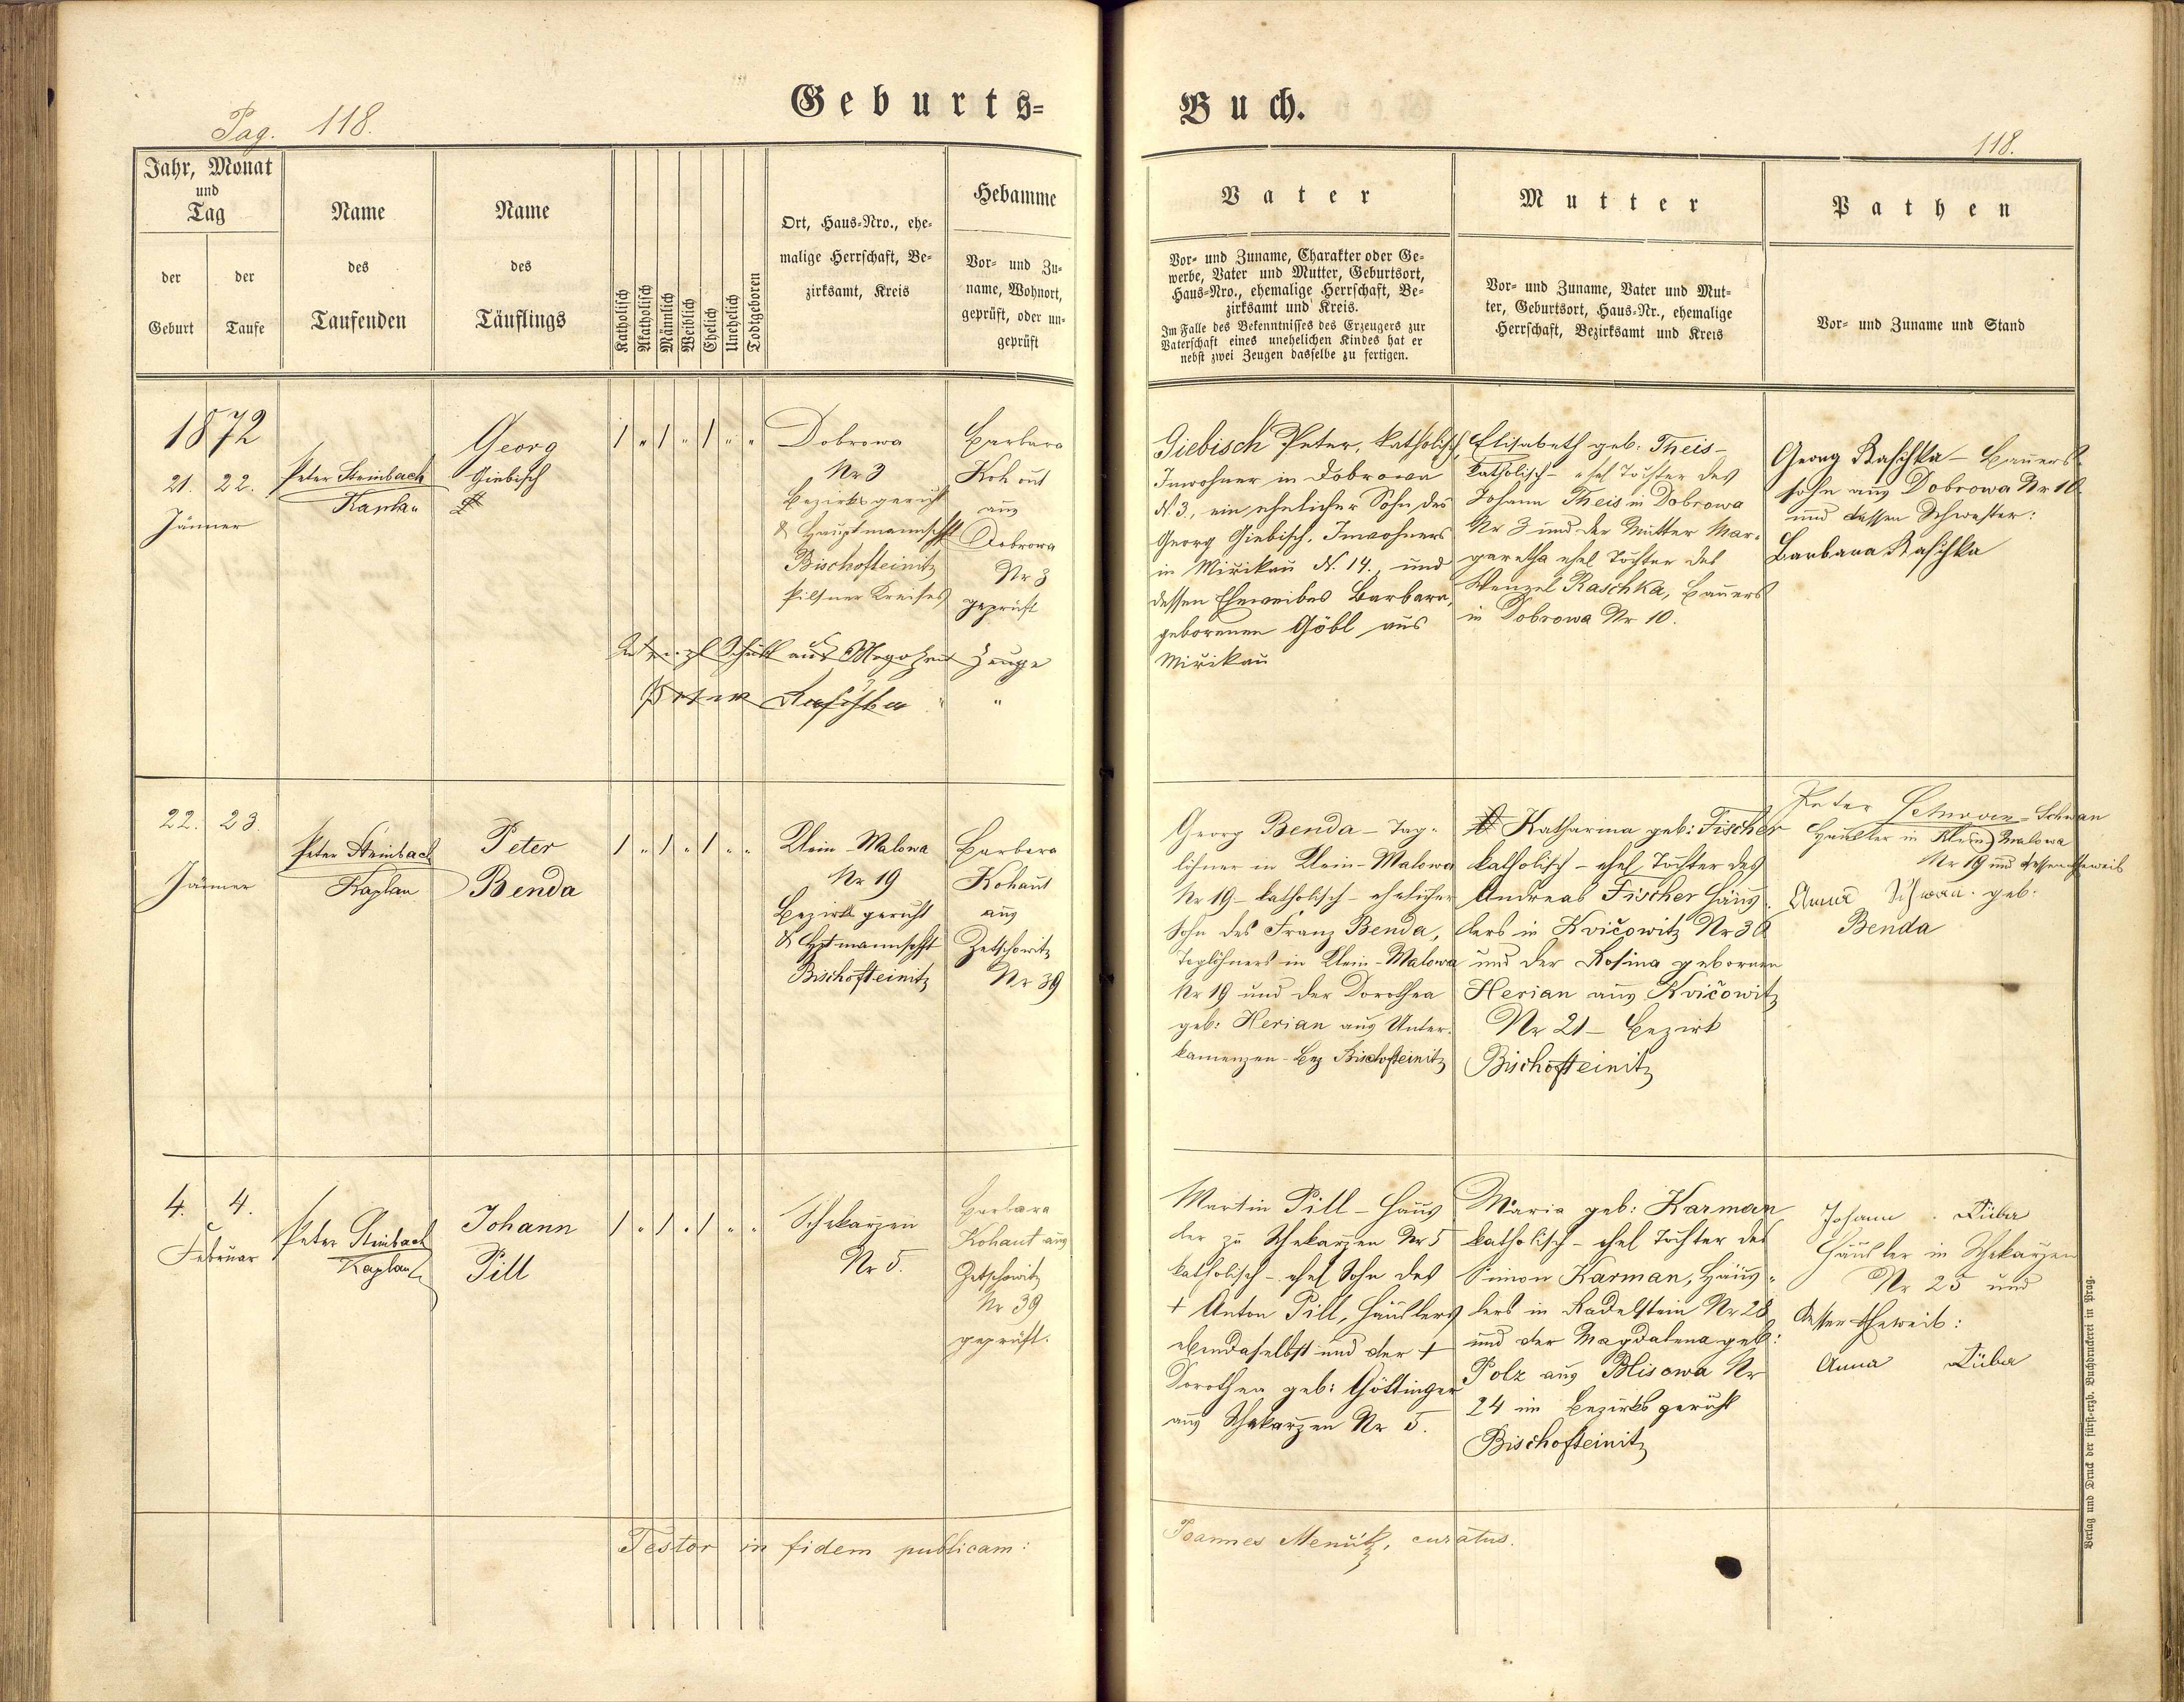 Geburts-
Buch.
Pag. 118.
118.
Jahr, Monat
und
Tag
der
Geburt
der
Taufe
Name
des
Taufenden
Name
des
Täuflings
Katholisch
Akatholisch
Männlich
Weiblich
Ehelich
Unehelich
Todtgeboren
Ort, Haus-Nro., ehe-
malige Herrschaft, Be-
zirksamt, Kreis
Hebamme
Vor- und Zu-
name, Wohnort,
geprüft, oder un-
geprüft
Vater
Vor- und Zuname, Charakter oder Ge-
werbe, Vater und Mutter, Geburtsort,
Haus-Nro., ehemalige Herrschaft, Be-
zirksamt und Kreis.
Im Falle des Bekenntnisses des Erzeugers zur
Vaterschaft eines unehelichen Kindes hat er
nebst zwei Zeugen dasselbe zu fertigen.
Mutter
Vor- und Zuname, Vater und Mut-
ter, Geburtsort, Haus-Nr., ehemalige
Herrschaft, Bezirksamt und Kreis
Pathen
Vor- und Zuname und Stand
1872
21. 22.
Jänner
Peter Steinbach
Kaplan
Georg
Giebisch
1 " 1 " 1 " "
Dobrowa
Nr 3
Bezirksgericht
& Hauptmannschft
Bischofteinitz
Pilsner Kreises
Barbara
Kohout
aus
Dobrowa
Nr 3
geprüft
Schütl aus Zeuge
Peter Raschka " "
Giebisch Peter, katholisch,
Inwohner in Dobrowa
N. 3., ein ehelicher Sohn des
Georg Giebisch, Inwohners
in Mirikau N. 14., und
dessen Eheweibes Barbara,
geborenen Göbl aus
Mirikau
Elisabeth geb. Theis -
katholisch - ehel Tochter des
Johann Theis in Dobrowa
Nr 3 und der Mutter Mar-
garetha ehel Tochter des
Wenzel Raschka, Bauers
in Dobrowa Nr 10.
Georg Raschka - Bauers-
sohn aus Dobrowa Nr 10
und dessen Schwester:
Barbara Raschka
22. 23.
Jänner
Peter Steinbach
Kaplan
Peter
Benda
1 " 1 " 1 " "
Klein-Malowa
Nr 19
Bezirksgericht
& Hptmannschft
Bischofteinitz
Barbara
Kohaut
aus
Zetschowitz
Nr 39
Georg Benda - Tag-
löhner in Klein-Malowa
Nr 19 - katholisch - ehelicher
Sohn des Franz Benda,
Taglöhners in Klein-Malowa
Nr 19 und der Dorothea
geb: Herian aus Unter-
kamenzen - Bez Bischofteinitz
Katharina geb: Fischer
katholisch - ehel Tochter des
Andreas Fischer Häus-
lers in Kvičowitz Nr 30
und der Rosina gebornen
Herian aus Kvičowitz
Nr 21 - Bezirk
Bischofteinitz
Peter Schwan
Häusler in Klein Malowa
Nr 19 und dessen Eheweib
Anna Schwan geb:
Benda
4. 4.
Februar
Peter Steinbach
Kaplan
Johann
Pill
1 " 1 " 1 " "
Schekarzen
Nr 5.
Barbara
Kohaut aus
Zetschowitz
Nr 39
geprüft.
Martin Pill - Häus
ler zu Schekarzen Nr 5
katholisch - ehel Sohn des
+ Anton Pill, Häuslers
ebendaselbst und der +
Dorothea geb: Göttinger
aus Schekarzen Nr 5.
Maria geb: Karman
katholisch - ehel Tochter des
Simon Karman, Häus-
lers in Radelstein Nr 28
und der Magdalena geb:
Polz aus Blisowa Nr
24 im Bezirksgericht
Bischofteinitz
Johann Liuba
Häusler in Schekarzen
Nr 25 und
dessen Eheweib:
Anna Liuba
Testor in fidem publicam:
Joannes curatus.
Verlag und Druck der fürst-erzb. Buchdruckerei in Prag.